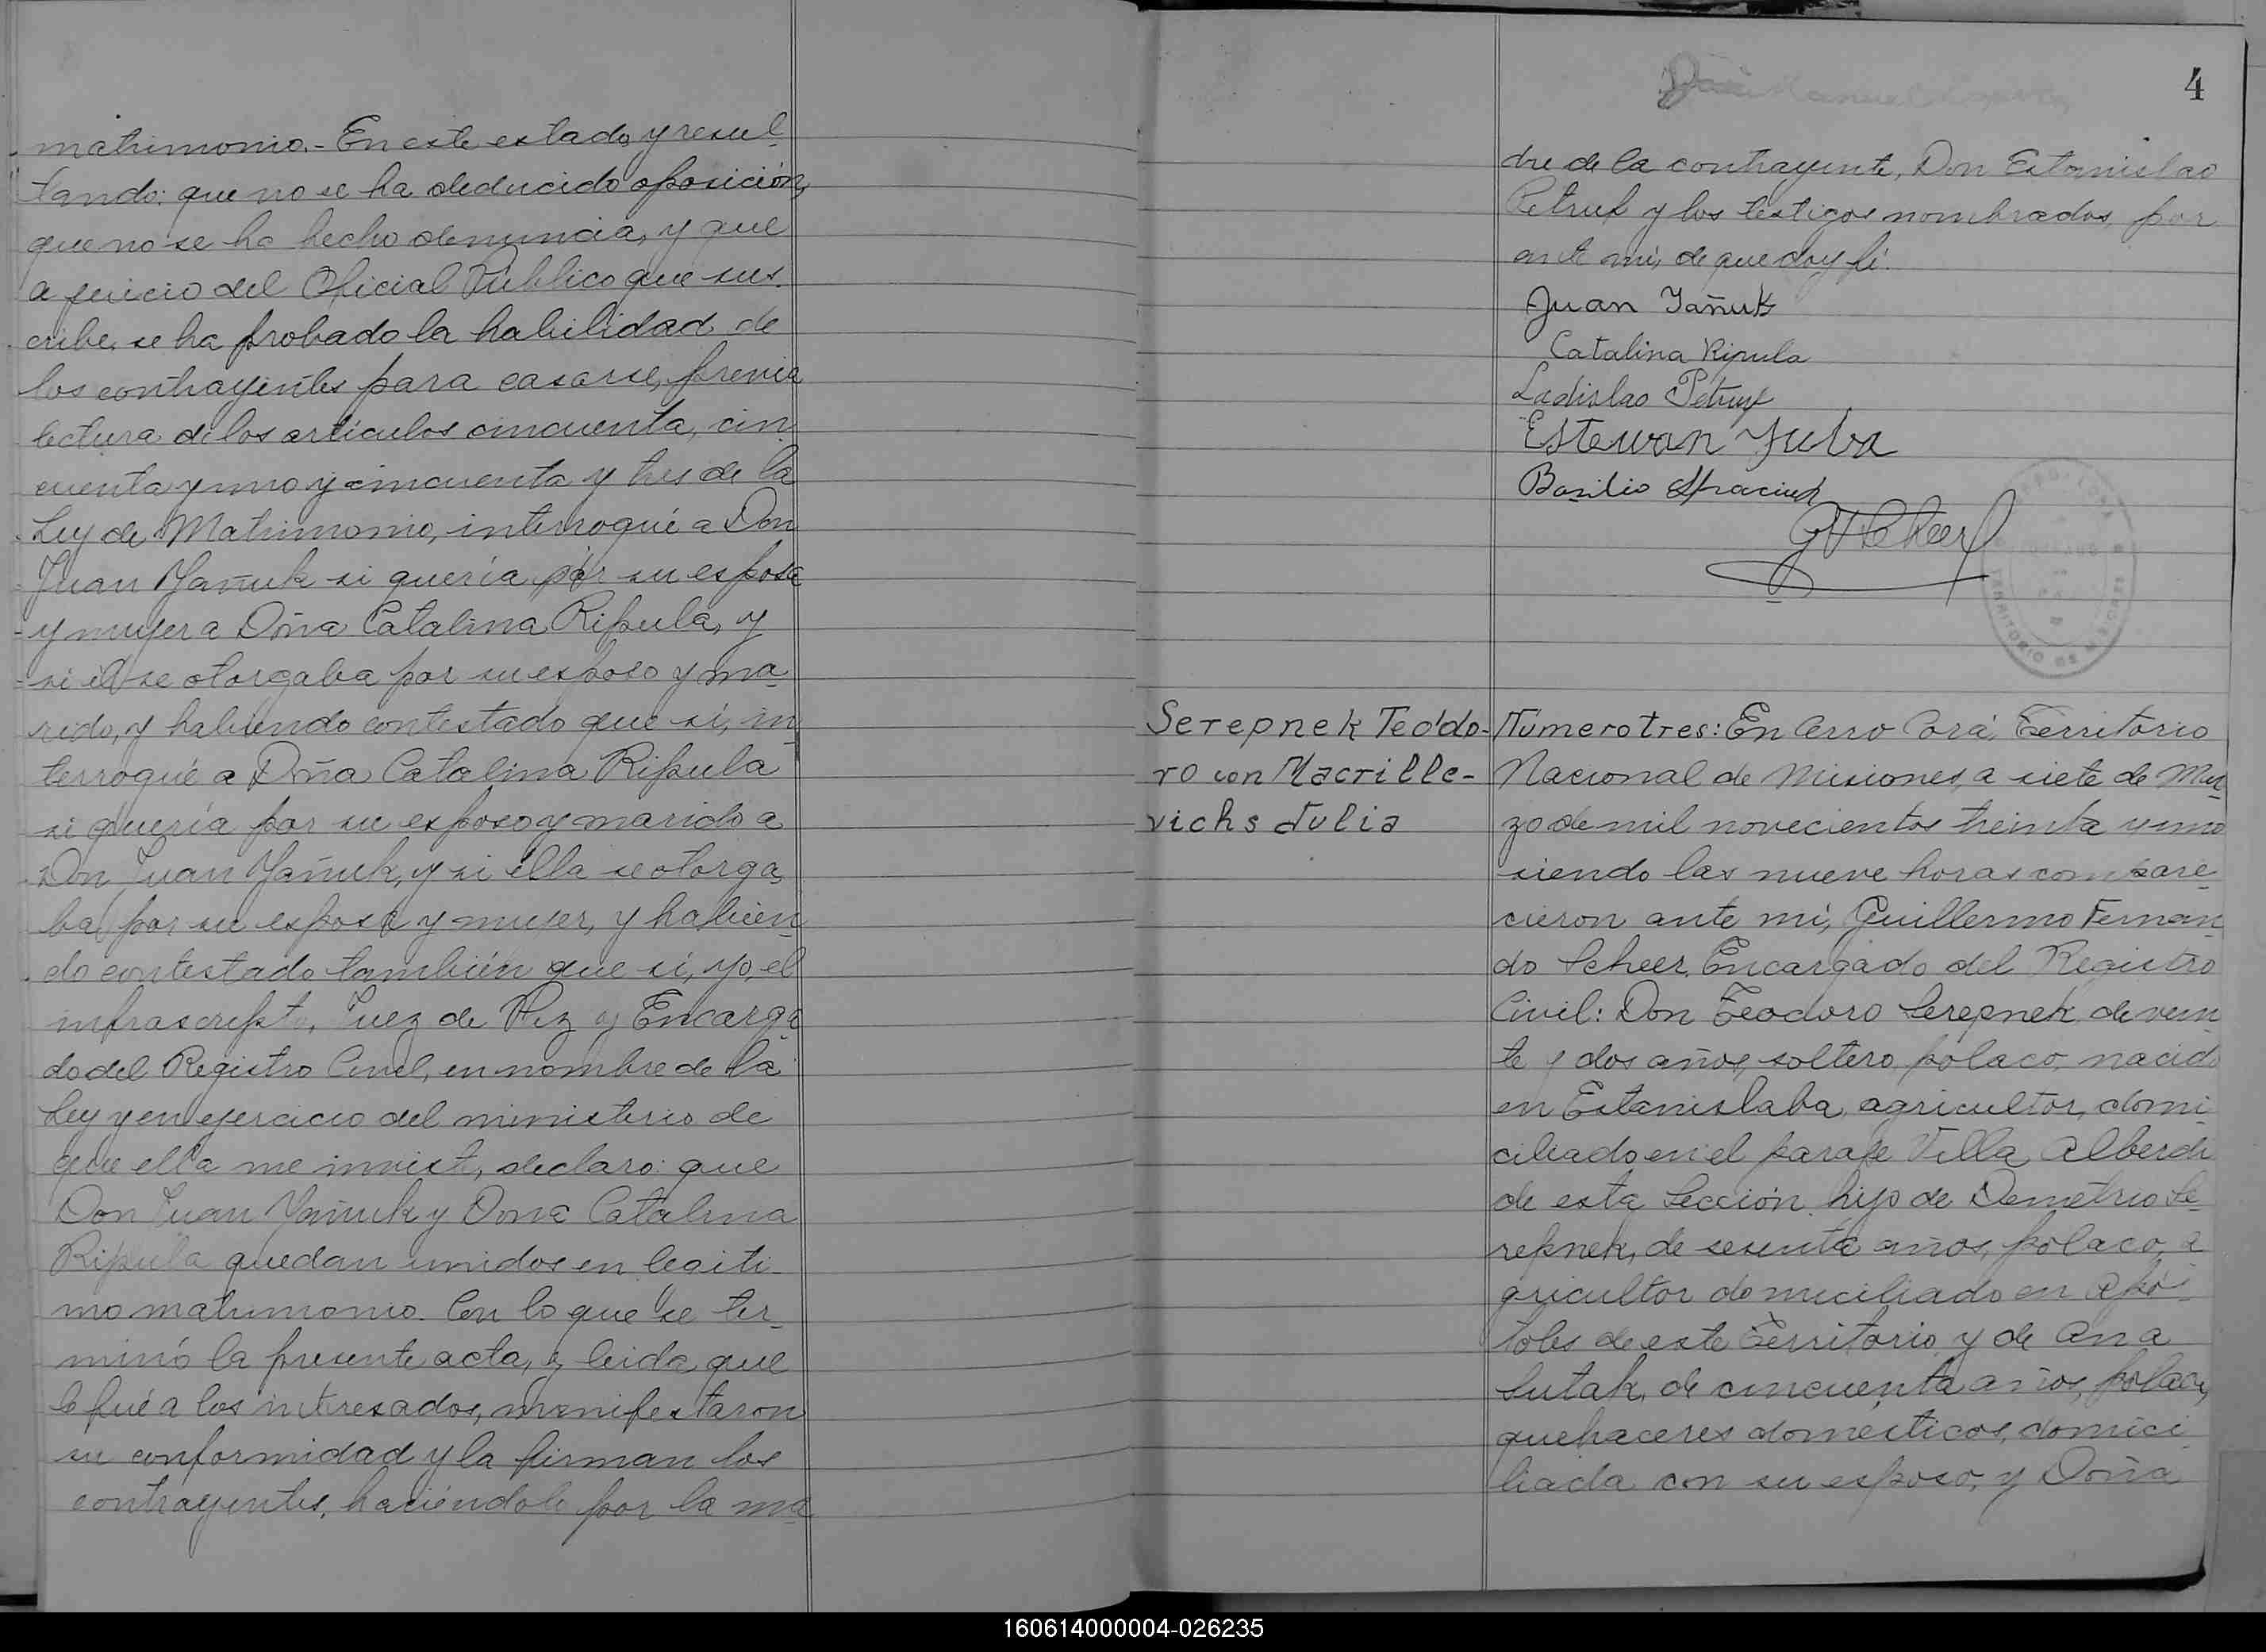 matrimonio.- En este estado, y resul-
tando: que no se ha deducido oposición,
que no se ha hecho denuncia, y que
a juicio del Oficial Público que sus-
cribe, se ha probado la habilidad de
los contrayentes para casarse, previa
lectura de los artículos cincuenta, cin-
cuenta y uno y cincuenta y tres de la
Ley de Matrimonio, interrogué a Don
Juan Yañuk si quería por su esposa
y mujer a Doña Catalina Ripula, y
si él se otorgaba por su esposo y ma-
rido, y habiendo contestado que sí, in-
terrogué a Doña Catalina Ripula
si quería por su esposo y marido a
Don Juan Yañuk, y si ella se otorga-
ba por su esposa y mujer, y habien-
do contestado también que sí, yo, el
infrascripto, Juez de Paz y Encarga-
do del Registro Civil, en nombre de la
Ley y en ejercicio del ministerio de
que ella me inviste, declaro: que
Don Juan Yañuk y Doña Catalina
Ripula quedan unidos en legíti-
mo matrimonio. Con lo que se ter-
minó la presente acta, y leida que
le fué a los interesados, manifestaron
su conformidad y la firman los
contrayentes, haciéndolo por la ma-
4
dre de la contrayente, Don Estanislao
Petruf y los testigos nombrados, por
ante mí, de que doy fé.
Juan Yañuk
Catalina Ripula
Ladislao Petruf
Estewan
Basilio
G F Scheer
TERRITORIO DE MISIONES
Serepnek Teodo-
ro con Macrille-
vichs Julia
Número tres: En Cerro Corá, Territorio
Nacional de Misiones, a siete de Mar-
zo de mil novecientos treinta y uno
siendo las nueve horas compare-
cieron ante mí, Guillermo Fernan-
do Scheer, Encargado del Registro
Civil: Don Teodoro Serepnek, de vein-
te y dos años, soltero, polaco, nacido
en Estanislaba, agricultor, domi-
ciliado en el paraje Villa Alberdi
de esta Sección, hijo de Demetrio Se-
repnek, de sesenta años, polaco, a-
gricultor domiciliado en Após-
toles de este Territorio y de Ana
Sutak, de cincuenta años, polaca,
quehaceres domésticos, domici-
liada con su esposo, y Doña
160614000004-026235